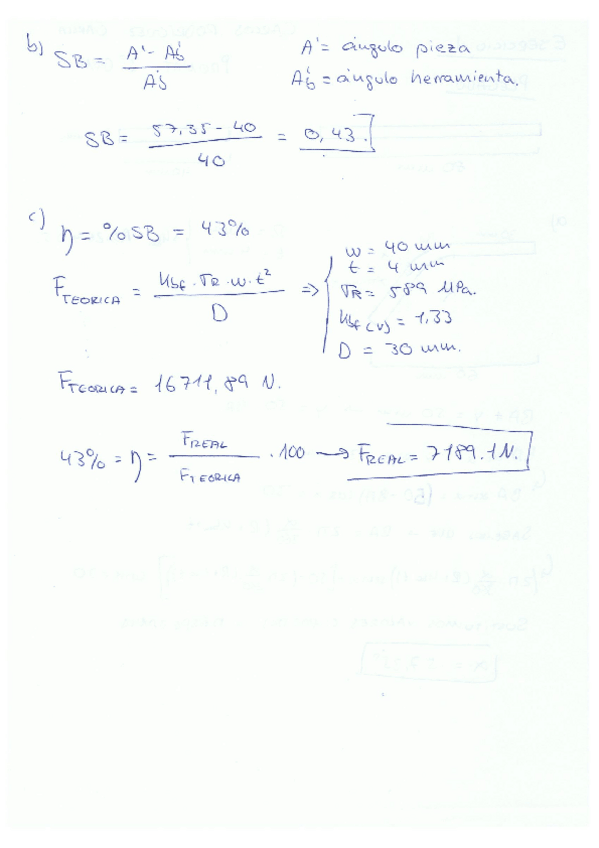 b) SB = (A' - A'b) / A'b    A' = ángulo pieza
A'b = ángulo herramienta.
SB = (57,35 - 40) / 40 = 0,43.
c) η = %SB = 43%
F_TEORICA = (Kbf · σR · w · t²) / D ⇒ { w = 40 mm
t = 4 mm
σR = 589 MPa.
Kbf(V) = 1,33
D = 30 mm.
F_TEORICA = 16711,89 N.
43% = η = (F_REAL / F_TEORICA) · 100 → F_REAL = 7189.1 N.